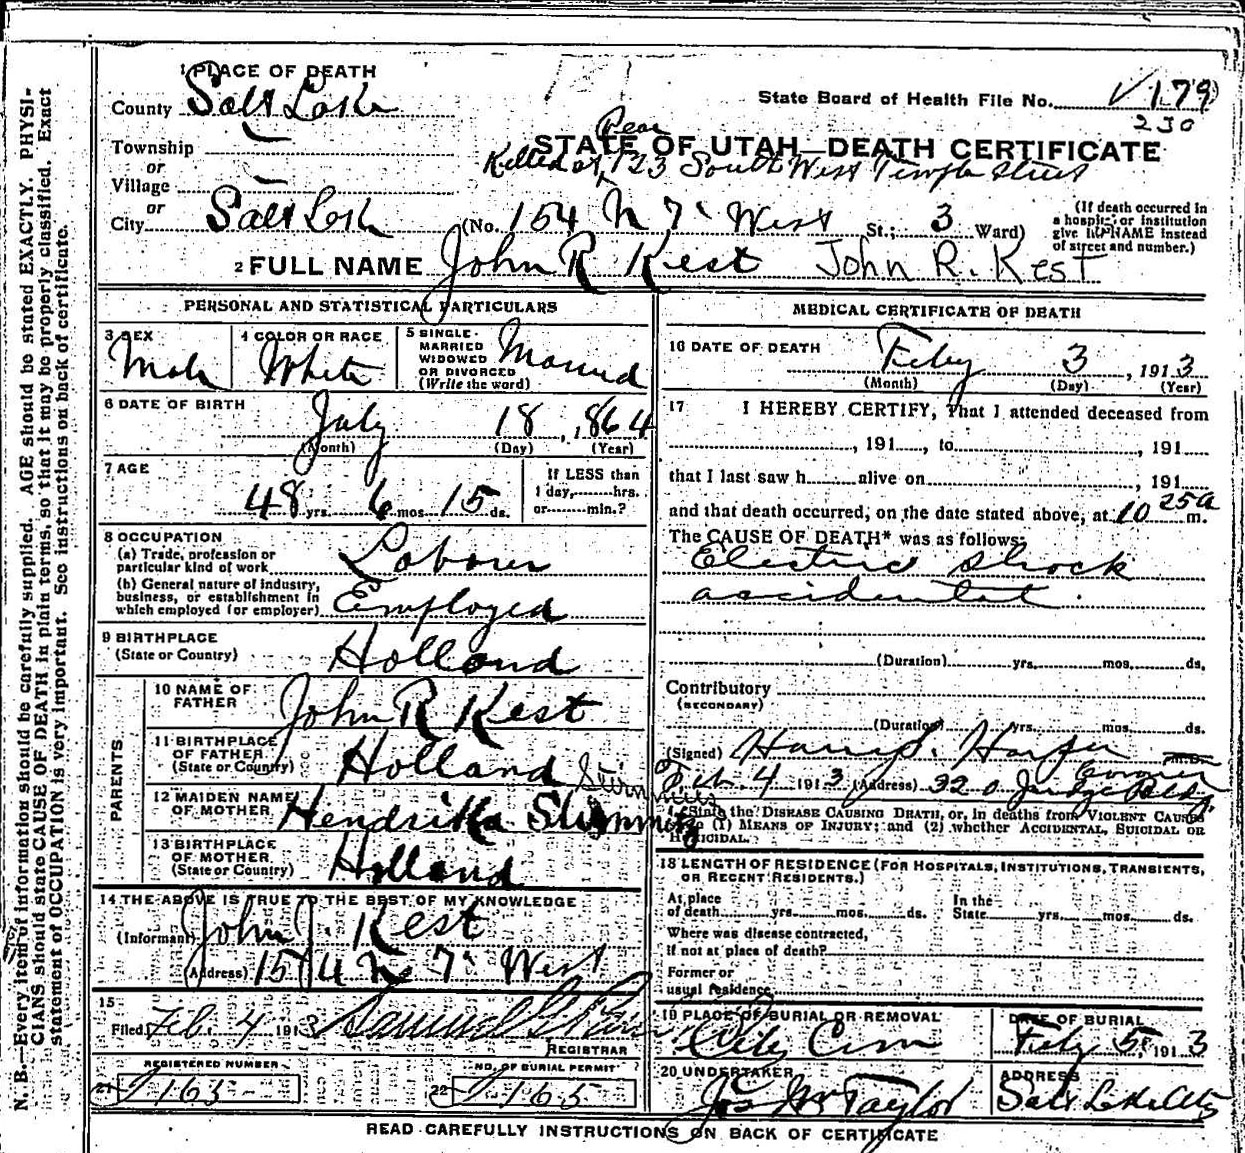 1 PLACE OF DEATH
County Salt Lake
State Board of Health File No. 179
230
Township
or
Village
or
STATE OF UTAH—DEATH CERTIFICATE
Rear
Killed at 123 South West Temple Street
City Salt Lake (No. 154 N 7" West St.; 3 Ward)
(If death occurred in
a hospital or institution
give its NAME instead
of street and number.)
2 FULL NAME John R Kest John R. Kest
PERSONAL AND STATISTICAL PARTICULARS
3 SEX
Male
4 COLOR OR RACE
White
5 SINGLE
MARRIED
WIDOWED
OR DIVORCED
(Write the word)
Married
6 DATE OF BIRTH
July 18, 1864
(Month) (Day) (Year)
7 AGE
48 yrs. 6 mos. 15 ds.
If LESS than
1 day, hrs.
or min.?
8 OCCUPATION
(a) Trade, profession or
particular kind of work Laborer
(b) General nature of industry,
business, or establishment in
which employed (or employer) Employed
9 BIRTHPLACE
(State or Country) Holland
PARENTS
10 NAME OF
FATHER John R Kest
11 BIRTHPLACE
OF FATHER
(State or Country) Holland
12 MAIDEN NAME
OF MOTHER Hendrika
13 BIRTHPLACE
OF MOTHER
(State or Country) Holland
14 THE ABOVE IS TRUE TO THE BEST OF MY KNOWLEDGE
(Informant) John J. Kest
(Address) 154 N 7" West
15
Filed Feb. 4 1913 Samuel G.
REGISTRAR
REGISTERED NUMBER
21 165
NO. OF BURIAL PERMIT
22 165
MEDICAL CERTIFICATE OF DEATH
16 DATE OF DEATH
Feby 3, 1913
(Month) (Day) (Year)
17 I HEREBY CERTIFY, That I attended deceased from
, 191 , to , 191
that I last saw h alive on , 191
and that death occurred, on the date stated above, at 10 25a m.
The CAUSE OF DEATH* was as follows:
Electric Shock
accidental.
(Duration) yrs. mos. ds.
Contributory
(SECONDARY)
(Duration) yrs. mos. ds.
(Signed) Harry S. Harper M.D.
Coroner
Feb. 4 1913 (Address) 320 Judge Bldg.
*State the DISEASE CAUSING DEATH, or, in deaths from VIOLENT CAUSES
state (1) MEANS OF INJURY; and (2) whether ACCIDENTAL, SUICIDAL OR
HOMICIDAL.
18 LENGTH OF RESIDENCE (FOR HOSPITALS, INSTITUTIONS, TRANSIENTS,
OR RECENT RESIDENTS.)
At place
of death yrs. mos. ds.
In the
State yrs. mos. ds.
Where was disease contracted,
if not at place of death?
Former or
usual residence
19 PLACE OF BURIAL OR REMOVAL
City Cem
DATE OF BURIAL
Feby 5, 1913
20 UNDERTAKER
Jos Wm Taylor
ADDRESS
Salt Lake City
READ CAREFULLY INSTRUCTIONS ON BACK OF CERTIFICATE
N. B.—Every item of information should be carefully supplied. AGE should be stated EXACTLY. PHYSI-
CIANS should state CAUSE OF DEATH in plain terms, so that it may be properly classified. Exact
statement of OCCUPATION is very important. See instructions on back of certificate.